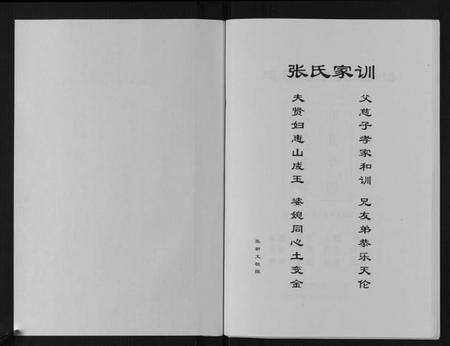 张氏家训
父慈子孝家和训 兄友弟恭乐天伦
夫贤妇惠山成玉 婆媳同心土变金